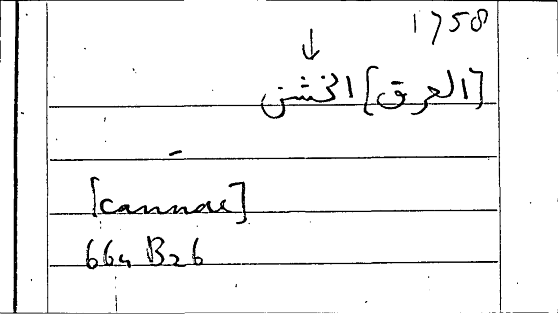 1758
↓
[العرق] الخشن
[cannae]
664 B26